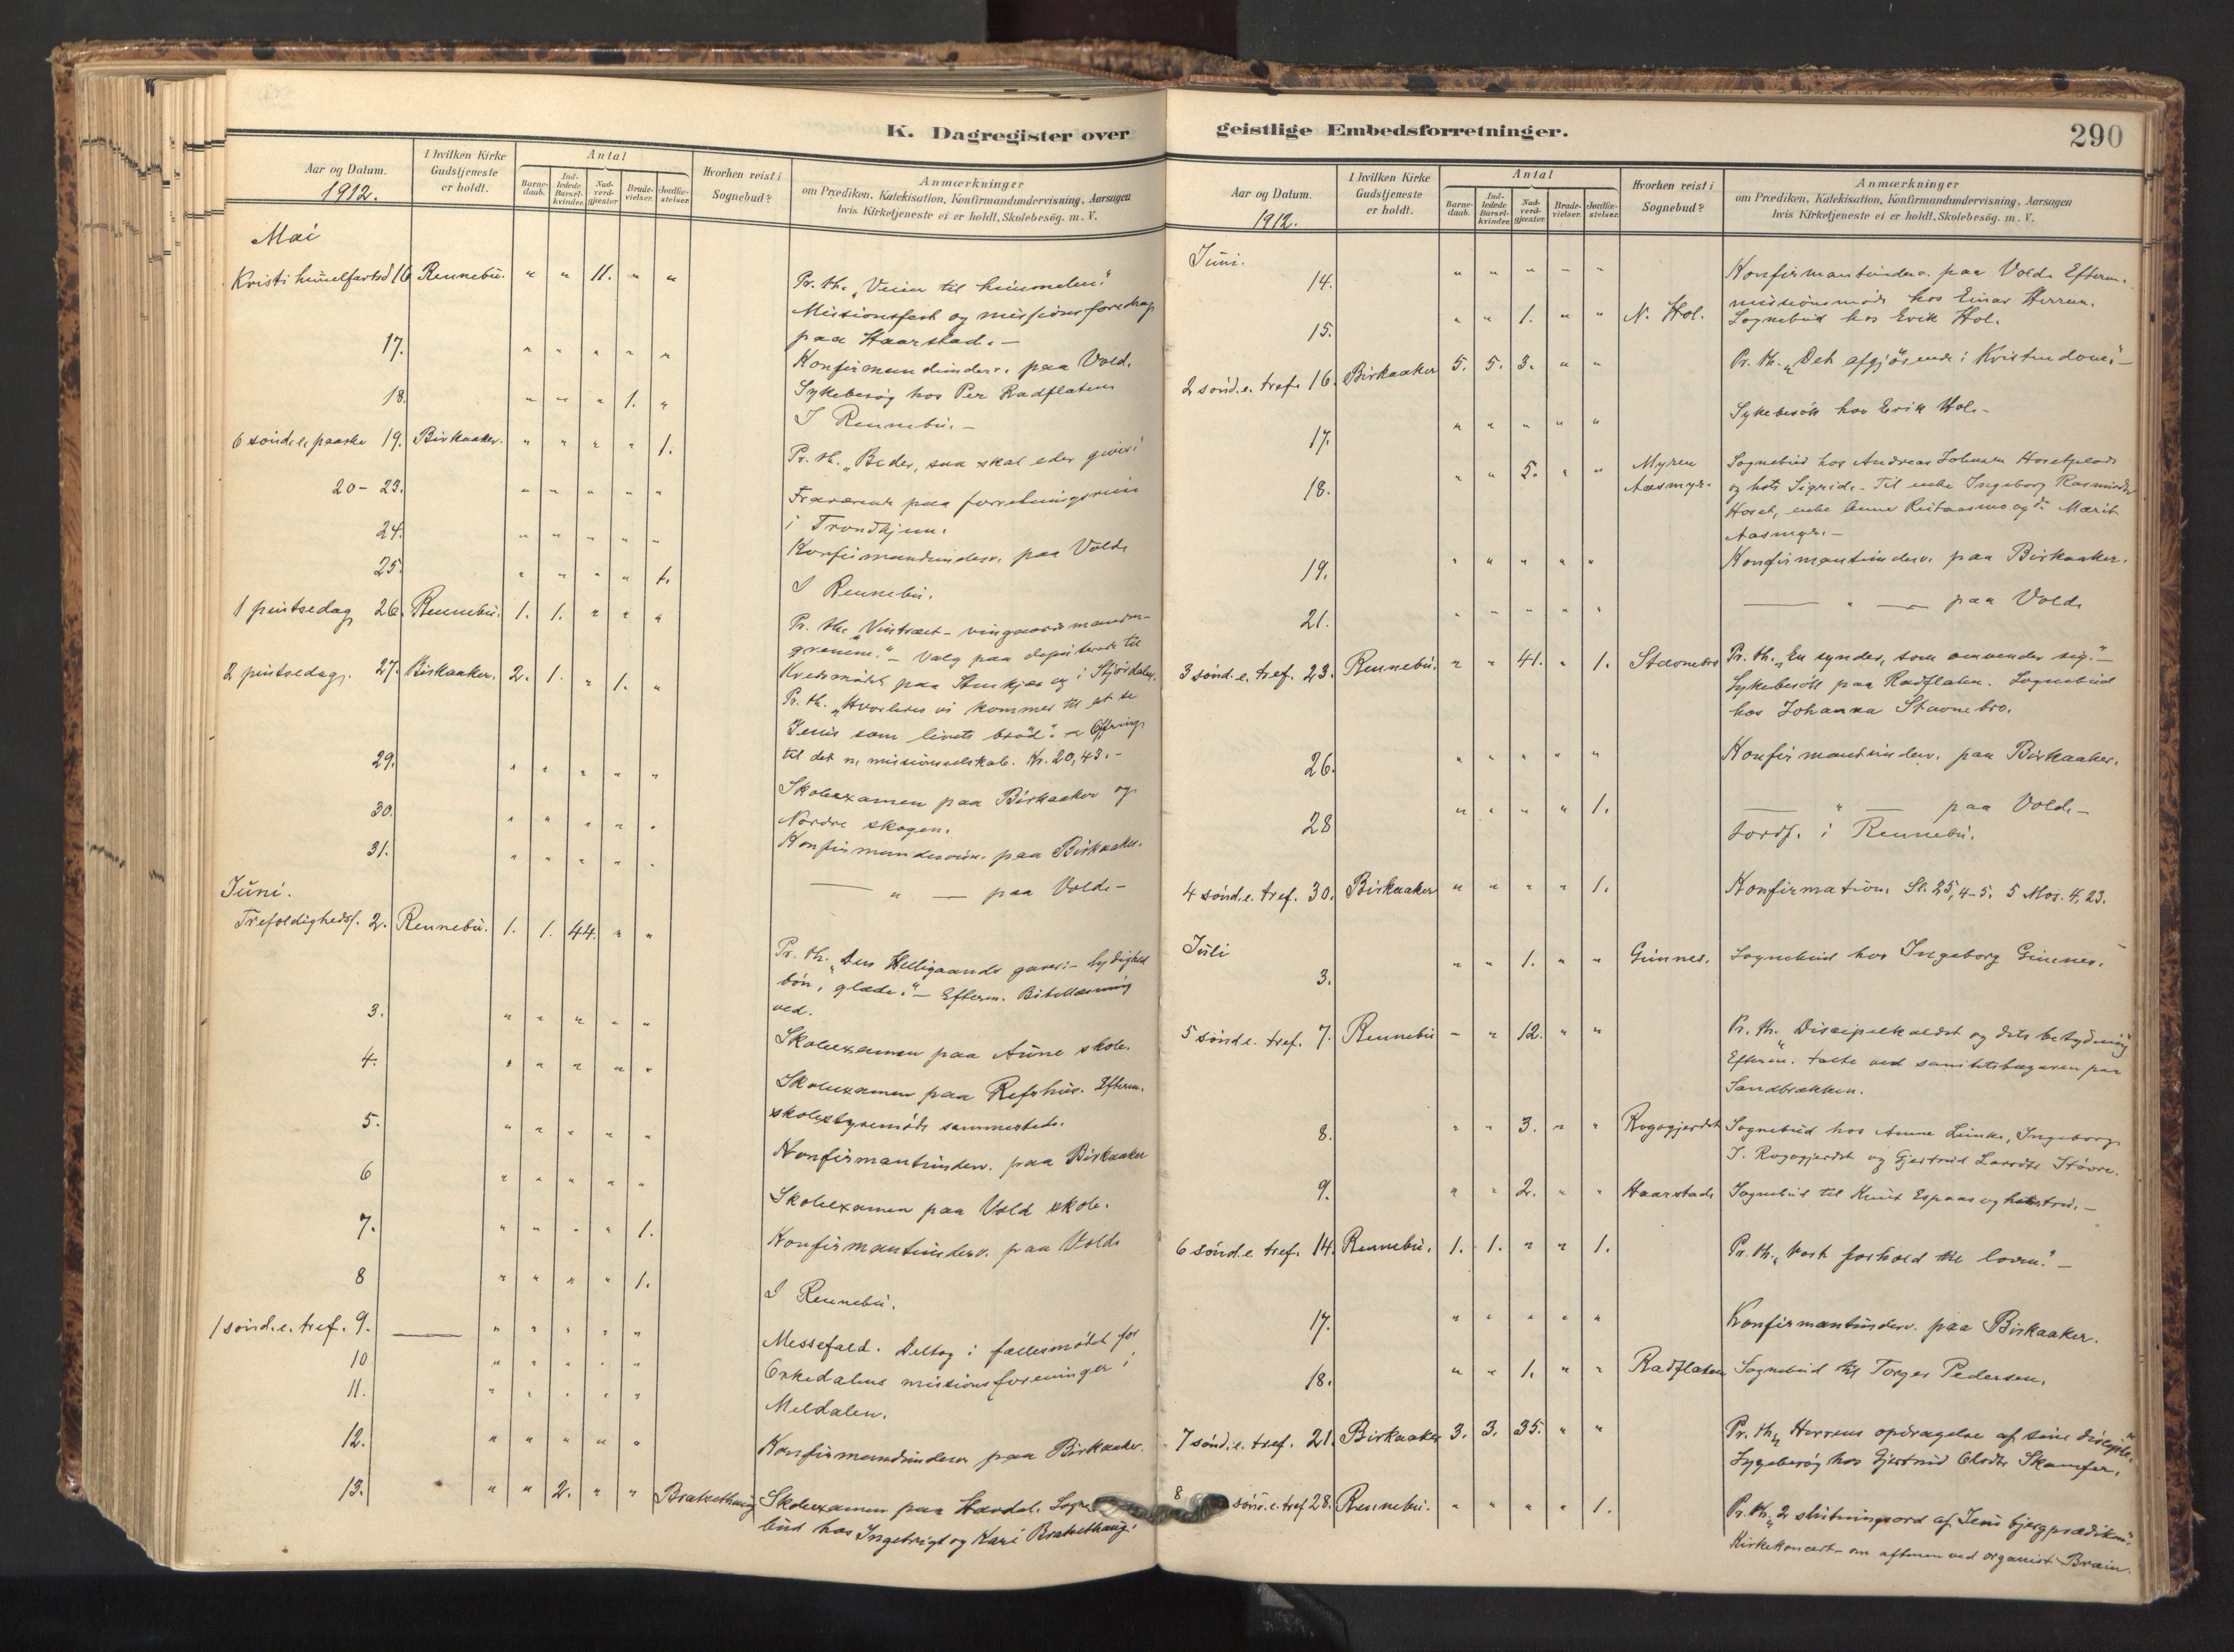 K. Dagregister over
Aar og Datum.
1912.
I hvilken Kirke
Gudstjeneste
er holdt.
Antal
Barne-
daab.
Ind-
ledede
Barsel-
kvinder.
Nad-
verd-
gjester.
Brude-
vielser.
Jordfæ-
stelser.
Hvorhen reist i
Sognebud?
Anmærkninger
om Prædiken, Katekisation, Konfirmandundervisning, Aarsagen
hvis Kirketjeneste ei er holdt, Skolebesög. m. V.
Mai
Kristi himelfartsd 16 Rennebu. " " 11. " " Pr. th. „Veien til himmelen."
Missionsfest og missionsforedrag
paa Haarstad. –
17. " " " " " Konfirmandunderv. paa Vold.
Sykebesøg hos Per Radflaten
18. " " " 1. " I Rennebu. –
6 sønd e. paaske 19. Birkaaker. " " " " 1. Pr. th. „Beder, saa skal eder gives"
20 – 23. " " " " " Fraværende paa forretningsreise
i Trondhjem.
24. " " " " " Konfirmandunderv. paa Vold.
25. " " " " 1. I Rennebu.
1 pintsedag 26. Rennebu. 1. 1. " " " Pr. th. „Vintræet – vingaardsmanden –
grenene." – Valg paa deputerede til
Kredsmødet paa Stenkjær og i Stjørdalen.
2 pintsedag. 27. Birkaaker. 2. 1. " 1. " Pr. th. „Hvorledes vi kommer til at se
Jesus som livets brød". – Offring
til det n. missionsselskab. Kr. 20,43. –
29. " " " " " Skoleexamen paa Birkaaker og
Nordre skogen.
30. " " " " " Konfirmandunderv. paa Birkaaker.
31. " " " " " — " — paa Vold. –
Juni.
Trefoldighedsf. 2. Rennebu. 1. 1. 44. " " Pr. th. „Den Helligaands gaver: – lydighed
bøn, glæde." – Efterm. Bibellæsning
ved.
3. " " " " " Skoleexamen paa Aune skole.
4. " " " " " Skoleexamen paa Refshus. Efterm.
skolestyremøde sammesteds.
5. " " " " " Konfirmantunderv. paa Birkaaker
6 " " " " " Skoleexamen paa Vold skole.
7. " " " " 1. Konfirmantunderv. paa Vold.
8 " " " " 1. I Rennebu.
1 sønd. e. tref. 9. — " " " " " Messefald. Deltog i fællesmødet for
10 " " " " " Orkedalens missionsforeninger i
11. " " " " " Meldalen.
12. " " " " " Konfirmandunderv paa Birkaaker.
13. " " 2. " " Bratsethaug Skoleexamen paa Havdal. Sogne
bud hos Ingebrigt og Kari Bratsethaug.
geistlige Embedsforretninger.
290
Aar og Datum.
1912.
I hvilken Kirke
Gudstjeneste
er holdt.
Antal
Barne-
daab.
Ind-
ledede
Barsel-
kvinder.
Nad-
verd-
gjester.
Brude-
vielser.
Jordfæ-
stelser.
Hvorhen reist i
Sognebud?
Anmærkninger
om Prædiken, Katekisation, Konfirmandundervisning, Aarsagen
hvis Kirketjeneste ei er holdt, Skolebesög. m. V.
Juni.
14. " " " " " Konfirmantunderv. paa Vold. Efterm.
missionsmøde hos Einar Herrem.
15. " " 1. " " N. Hol. Sognebud hos Erik Hol.
2 sønd. e. tref. 16. Birkaaker 5. 5. 3. " " Pr. th. „Det afgjørende i Kristendom." –
17. " " " " " Sykebesøk hos Erik Hol. –
18. " " 5. " " Myren Sognebud hos Andreas Johnsen Hosetplads
Aasmyr. og hust Sigrid. – Til enke Ingeborg Rasmusdtr
Hoset, enke Anne Reitaasmo og do Marit
Aasmyr. –
19. " " " " " Konfirmantunderv. paa Birkaaker.
21. " " " " " — " — paa Vold.
3 sønd. e. tref. 23. Rennebu. " " 41. " 1. Stavnebro Pr. th. „En synder, som omvender sig." –
Sykebesøk paa Radflaten. Sognebud
hos Johanna Stavnebro.
26. " " " " " Konfirmandunderv. paa Birkaaker.
28 " " " " 1. — " — paa Vold. –
Jordf. i Rennebu.
4 sønd. e. tref. 30. Birkaaker " " " " 1. Konfirmation. Sl. 25, 4–5. 5 Mos. 4, 23.
Juli
3. " " 1. " " Gunnes. Sognebud hos Ingeborg Gunnes. –
5 sønd e. tref. 7. Rennebu " " 12. " " Pr. th. „Discipelkaldet og dets betydning"
Efterm. talte ved sanitetsbazaren paa
Sandbrækken.
8. " " 3. " " Rogogjerdet Sognebud hos Anne Lunke, Ingeborg
J. Rogogjerdet og Gjertrud Larsdtr Støvre.
9. " " 2. " " Haarstad. Sognebud til Knut Espaas og hustru. –
6 sønd. e. tref. 14. Rennebu. 1. 1. " " 1. Pr. th. „Vort forhold til loven." –
17. " " " " " Konfirmantunderv. paa Birkaaker.
18. " " 1. " " Radflaten Sognebud til Torger Pedersen.
7 sønd. e. tref. 21. Birkaaker 3. 3. 35. " " Pr. th. „Herrens opdragelse af sine disciple."
Sygebesøg hos Gjertrud Olsdtr Skamfer.
8 sønd. e. tref 28. Rennebu. " " " " 1. Pr. th. „2 slutningsord af Jesu bjergprædiken."
Kirkekoncert om aftenen ved organist Bræin.